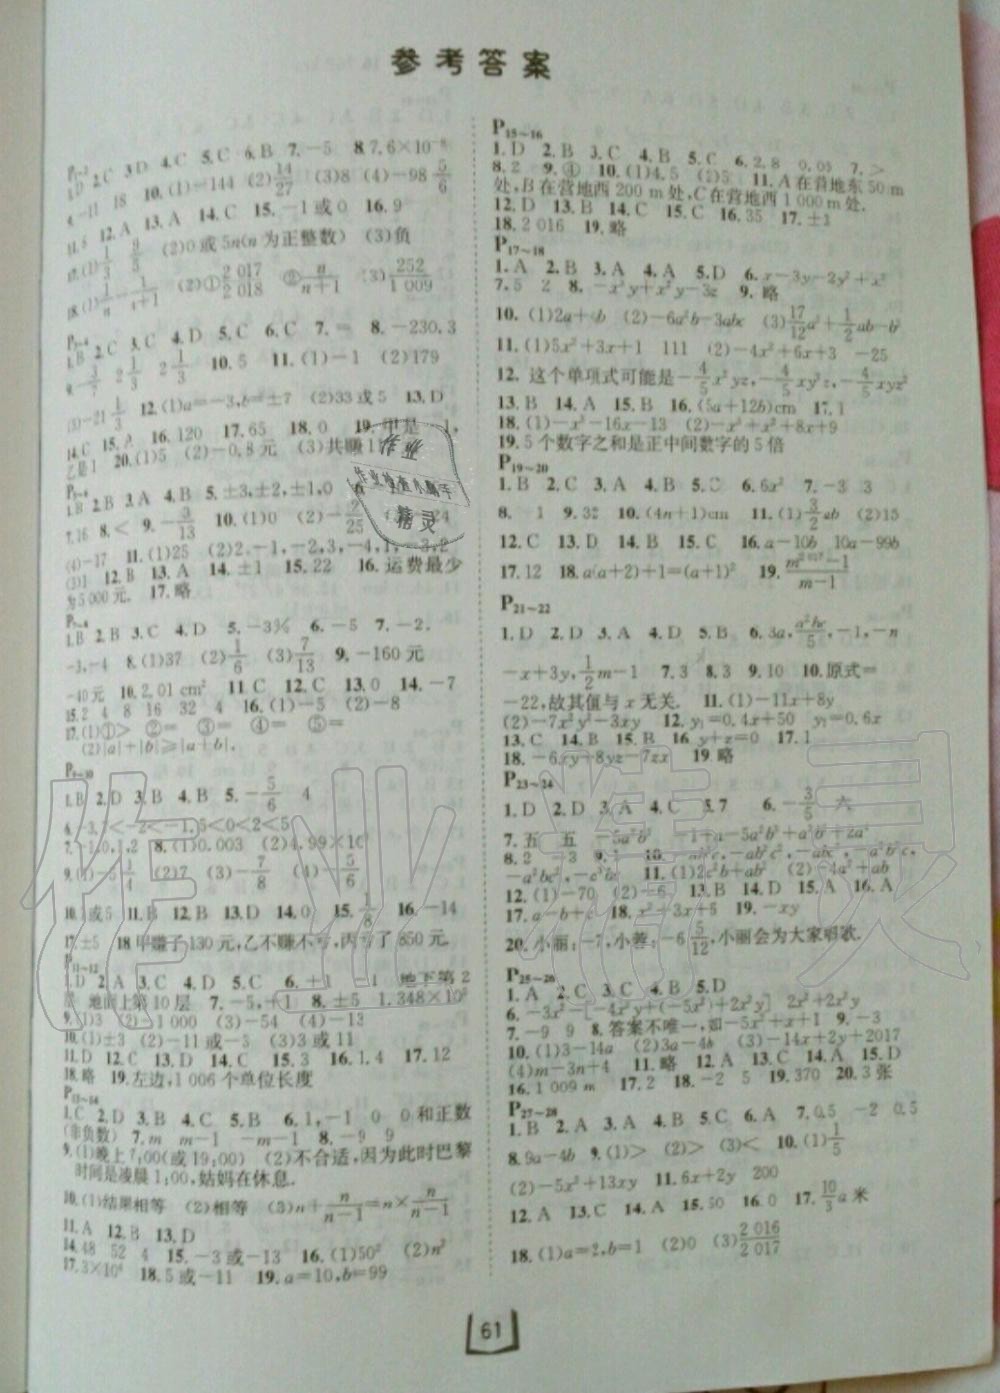 参考答案
P1~2
1.D 2.C 3.D 4.C 5.C 6.B 7.-5 8.7.6×10⁻⁸
9.-11 18 10.(1)-144 (2)14/27 (3)8 (4)-98 5/6
11.8 12.A 13.A 14.C 15.-1或0 16.9
17.(1)1/3 9/5 (2)0或5n(n为正整数) (3)负
18.(1)1/n-1/(n+1) (2)①2 017/2 018 ②n/(n+1) (3)252/1 009
P3~4
1.B 2.C 3.C 4.D 5.C 6.C 7.= 8.-230.3
9.-3/7 2 1/3 2 1/3 10.5 11.(1)-1 (2)179
(3)-21 1/3 12.(1)a=-3,b=±7 (2)33或5 13.D
14.C 15.A 16.120 17.65 18.0 19.甲是-1,
乙是1 20.(1)5 (2)-0.8元 (3)共赚
P5~6
1.B 2.B 3.A 4.B 5.±3,±2,±1,0
7.16 8.< 9.-3/13 10.(1)0 24
(4)-17 11.(1)25 (2)2,-1,-2,3,-4,1,-3,2
(3)1 12.B 13.A 14.±1 15.22 16.运费最少
为5 000元. 17.略
P7~8
1.B 2.B 3.C 4.D 5.-3% 6.-5 7.-2,
-3,-4 8.(1)37 (2)1/6 (3)7/13 9.-160元
-40元 10.2.01 cm² 11.C 12.C 13.0 14.-7
15.2 4 8 16 32 4 16.(1)-5 (2)-8
17.(1)①> ②= ③= ④= ⑤=
(2)|a|+|b|≥|a+b|.
P9~10
1.B 2.D 3.B 4.B 5.-5/6 4
6.-3.5<-2<-1.5<0<2<5
7.-1,0,1,2 8.(1)0.003 (2)4.99×10
9.(1)-5 1/4 (2)7 (3)-7/8 (4)-5/6
11.B 12.B 13.D 14.0 15.1/8 16.-14
17.±5 18.甲赚了130元,乙不赚不亏,丙亏了850元.
P11~12
1.D 2.A 3.C 4.D 5.C 6.+1 -1 地下第2
层 地面上第10层 7.-5,+1 8.±5 1.348×10⁹
9.(1)3 (2)-1 000 (3)-54 (4)-13
10.(1)±3 (2)-11或-3 (3)3或11
11.D 12.C 13.D 14.C 15.3 16.1.4 17.12
18.略 19.左边,1 006个单位长度
P13~14
1.C 2.D 3.B 4.C 5.B 6.1,-1 0 0和正数
(非负数) 7.m m-1 -m-1 8.-9 9
9.(1)晚上7:00(或19:00) (2)不合适,因为此时巴黎
时间是凌晨1:00,姑妈在休息.
10.(1)结果相等 (2)相等 (3)n+n/(n-1)=n×n/(n-1)
11.A 12.B 13.D
14.48 52 4 15.-3或-13 16.(1)50² (2)n²
17.3×10⁴ 18.5或-11 19.a=10,b=99
P15~16
1.D 2.B 3.C 4.B 5.C 6.2.8 0.05 7.>
8.2 9.④ 10.(1)4.5 (2)5 11.A在营地东50 m
处,B在营地西200 m处,C在营地西1 000 m处.
12.D 13.B 14.C 15.C 16.35 17.±3
18.2 016 19.略
P17~18
1.A 2.B 3.A 4.A 5.D 6.x-3y-2y²+x²
7.5 2 8.-x³y+x²y-3z 9.略
10.(1)2a+4b (2)-6a²b-3abc (3)17/12a²+1/2ab-b²
11.(1)5x²+3x+1 111 (2)-4x²+6x+3 -25
12.这个单项式可能是-4/5x²yz,-4/5xy²z,-4/5xyz²
13.B 14.A 15.B 16.(5a+12b)cm 17.1
18.(1)-x²-16x-13 (2)-x³+x²+8x+9
19.5个数字之和是正中间数字的5倍
P19~20
1.B 2.C 3.A 4.B 5.C 6.6x² 7.-3 3
8.-1 9.32 10.(4n+1)cm 11.(1)3/2ab (2)15
12.C 13.D 14.B 15.C 16.a-10b 10a-99b
17.12 18.a(a+2)+1=(a+1)² 19.(m²⁰¹⁷-1)/(m-1)
P21~22
1.D 2.D 3.A 4.D 5.B 6.3a,a²bc/5,-1,-n
-x+3y,1/2m-1 7.3 8.3 9.10 10.原式=
-22,故其值与x无关. 11.(1)-11x+8y
(2)-7x²y²-3xy 12.y₁=0.4x+50 y₁=0.6x
13.C 14.B 15.B 16.y+z=0 17.1
18.-6xy+8yz-7zx 19.略
P23~24
1.D 2.D 3.A 4.C 5.7 6.-3/5 六
7.五 五 -5a²b³ -1+a-5a²b³+a³b+2a²
8.2 -3 -ab²c,-abc²,-a²b²c,
-a²bc²,-c³b² 11.(1)2c²b+ab² (2)-4a²+ab
12.(1)-70 (2)-6 13.B 14.D 15.A 16.A
17.a-b+c 18.x²+3x+6 19.-xy
20.小丽:-7,小蓉:-6 5/12,小丽会为大家唱歌.
P25~26
1.A 2.C 3.C 4.B 5.D
6.-3x²-[-4x²y+(-5x²)+2x²y] 2x²+2x²y
7.-9 9 8.答案不唯一,如-5x²+x+1 9.-3
10.(1)3-14a (2)3a-4b (3)-14x+2y+2017
(4)m-3n+4 11.略 12.A 13.C 14.A 15.D
16.1 009 m 17.2 18.-2 5 19.370 20.3张
P27~28
1.B 2.A 3.A 4.B 5.C 6.A 7.0.5 -2 0.5
8.9a-4b 9.(1)> (2)> (3)< 10.(1)1/5
(2)-5x²+13xy 11.6x+2y 200
12.A 13.C 14.A 15.50 16.0 17.10/3a米
18.(1)a=2,b=1 (2)0 (3)2 016/2 017
61